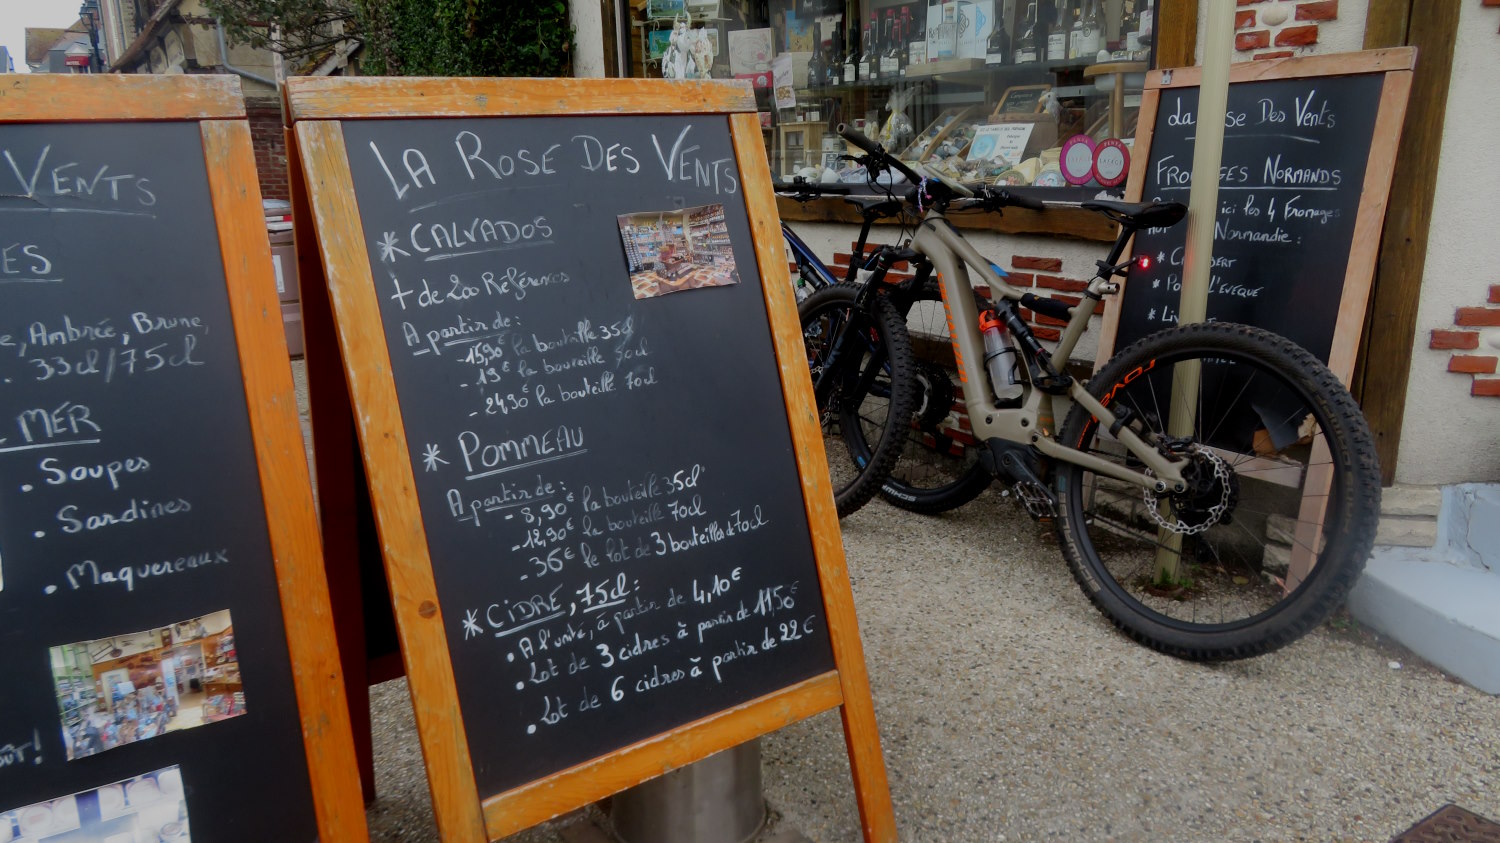 VENTS
ES
e, Ambrée, Brune,
. 33cl/75cl
MER
• Soupes
• Sardines
• Maquereaux
oût!
LA ROSE DES VENTS
* CALVADOS
+ de 200 Références
A partir de :
- 15,90€ la bouteille 35cl
- 19€ la bouteille 50cl
- 24,90€ la bouteille 70cl
* POMMEAU
A partir de :
- 8,90€ la bouteille 35cl
- 12,90€ la bouteille 70cl
- 36€ le lot de 3 bouteilles de 70cl
* CIDRE, 75cl :
• A l'unité, a partir de 4,10€
• Lot de 3 cidres à partir de 11,50€
• Lot de 6 cidres à partir de 22€
La Rose Des Vents
FROMAGES NORMANDS
ici les 4 Fromages
Normandie :
* 
* L'EVEQUE
*